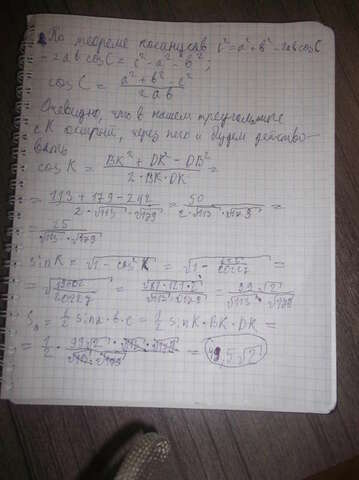 По теореме косинусов c² = a² + b² - 2ab cos C
2ab cos C = c² - a² - b²;
cos C = (a² + b² - c²) / (2ab)
Очевидно, что в нашем треугольнике
∠K острый, через него и будем действо-
вать
cos K = (BK² + DK² - DB²) / (2·BK·DK) =
= (113 + 179 - 242) / (2·√113·√179) = 50 / (2·√113·√179) =
= 25 / (√113·√179)
sin K = √(1 - cos² K) = √(1 - 625/20227) =
= √(19602/20227) = √(81·121·2) / (√113·√179) = 99√2 / (√113·√179)
S = 1/2 sin α·b·c = 1/2 sin K·BK·DK =
= 1/2 · (99√2·√113·√179) / (√113·√179) = 49,5√2